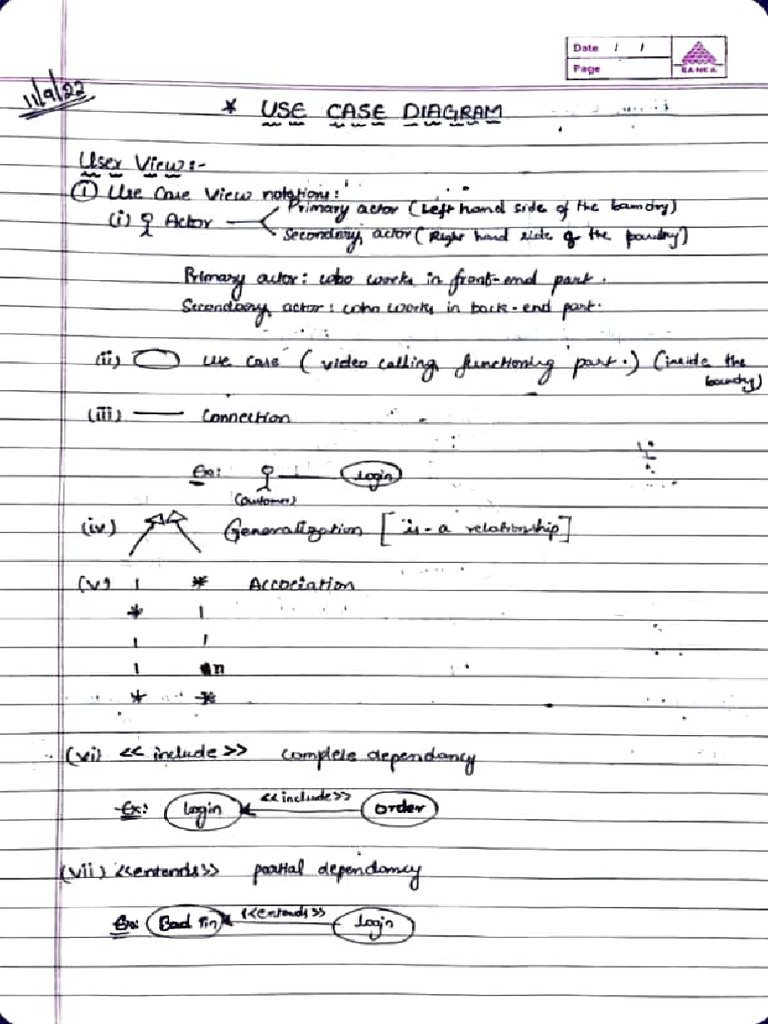 Date / /
Page
11/9/22
* USE CASE DIAGRAM
User View:-
① Use Case View notations:
(i) Actor
Primary actor (Left hand side of the boundry)
Secondary actor (Right hand side of the boundry)
Primary actor: who works in front-end part.
Secondary actor: who works in back-end part.
(ii) use case (video calling, functioning part.) (inside the
boundry)
(iii) — Connection
Ex: Login
(customer)
(iv) Generalization [is-a relationship]
(v) 1 * Accociation
* 1
1 1
1 n
* *
(vi) <<include>> complete dependancy
Ex: Login <<include>> order
(vii) <<entends>> partial dependancy
Ex: Bad Pin <<entends>> Login